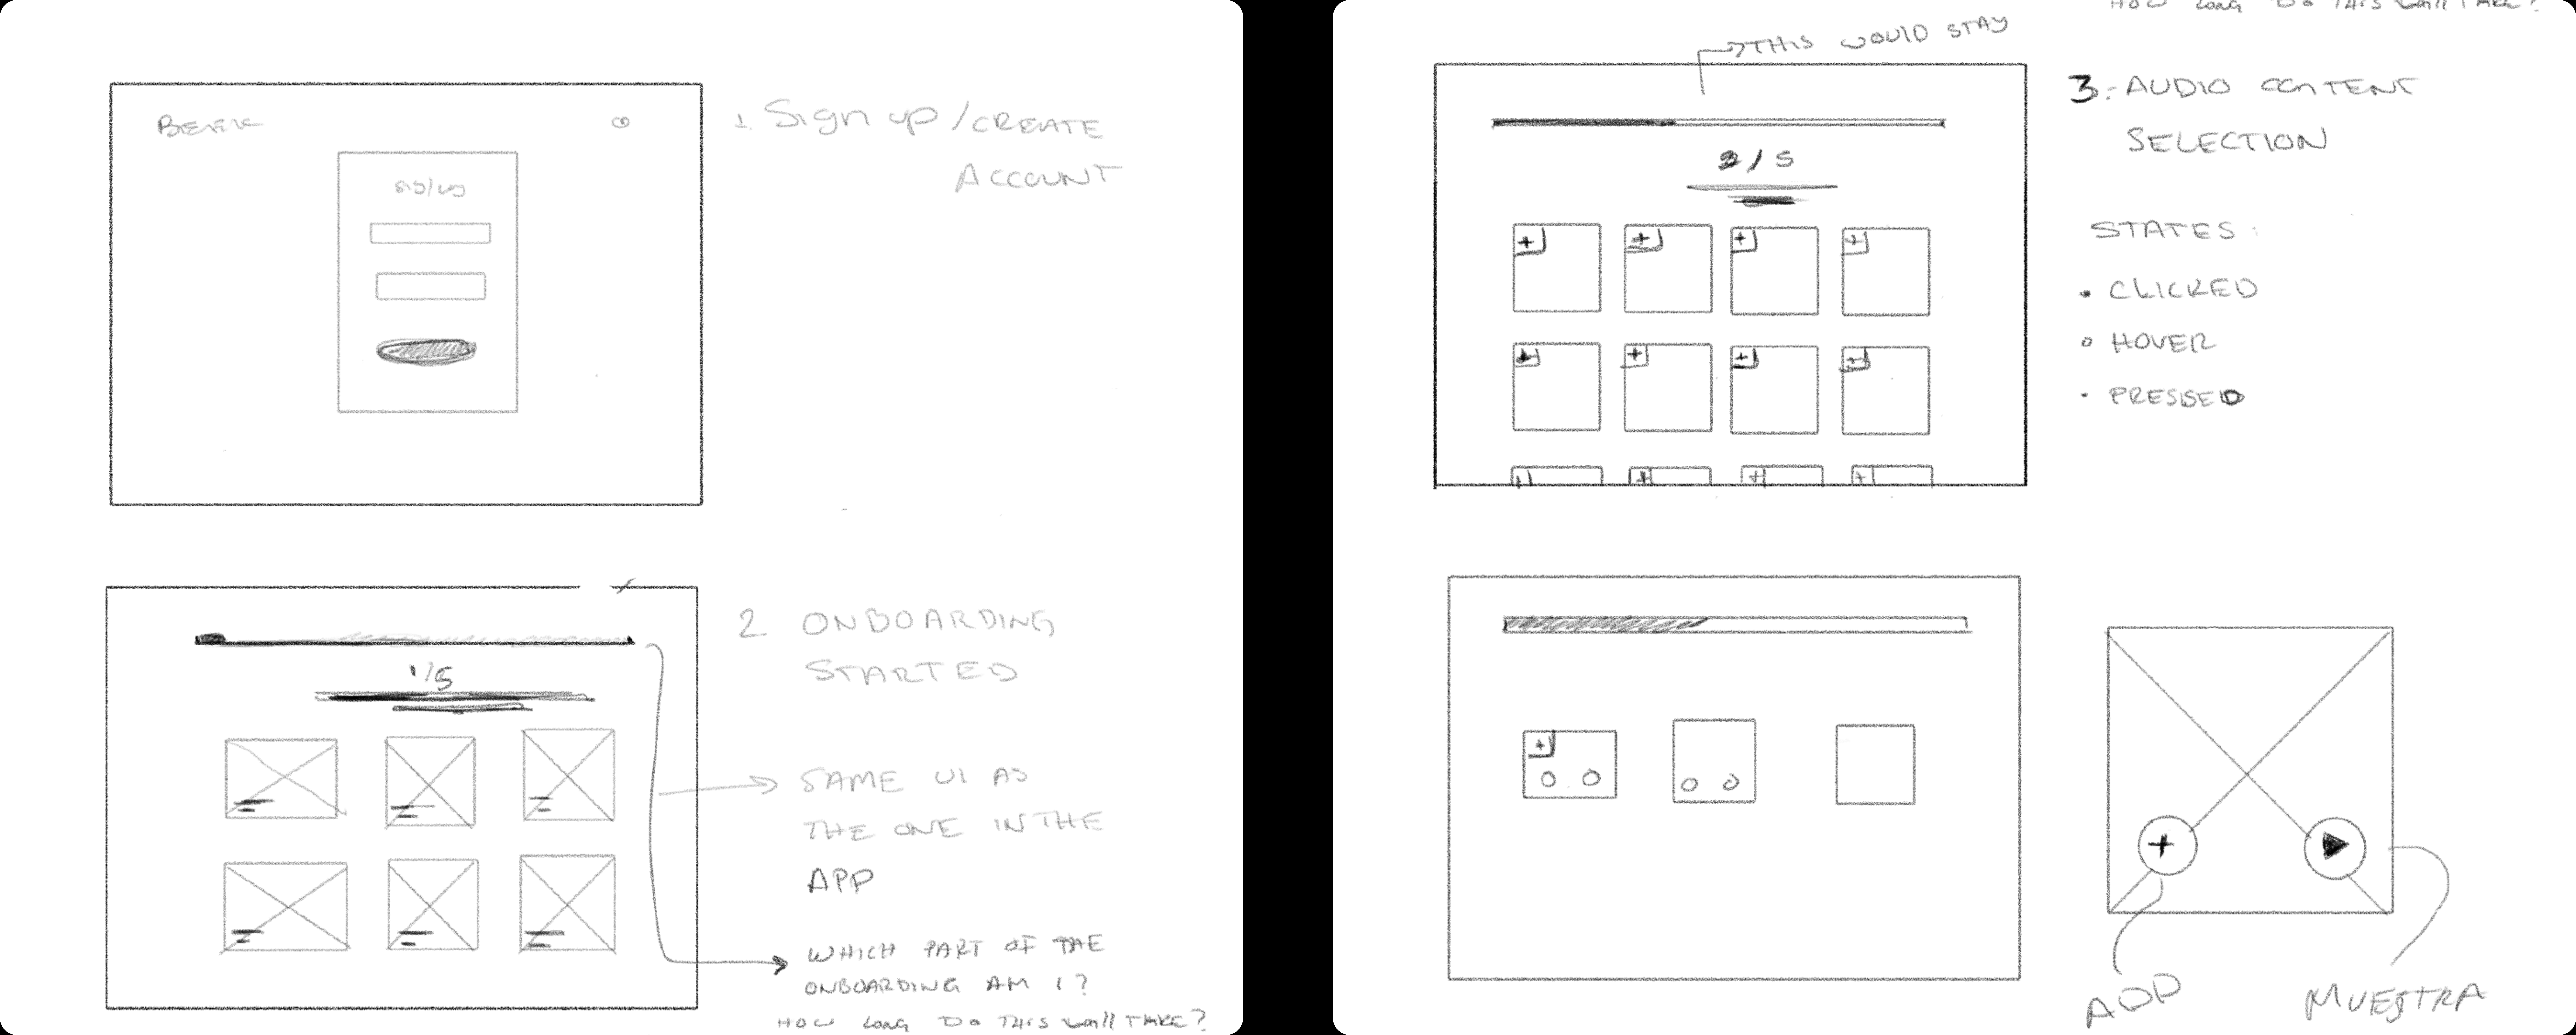 BEEK
1. Sign up / CREATE
ACCOUNT
2 ONBOARDING
STARTED
1/5
SAME UI AS
THE ONE IN THE
APP
WHICH PART OF THE
ONBOARDING AM I?
HOW LONG DO THIS WILL TAKE?
HOW LONG DO THIS WILL TAKE?
THIS WOULD STAY
3. AUDIO CONTENT
SELECTION
2/5
+ + + +
+ + + +
+ + + +
STATES:
• CLICKED
○ HOVER
• PRESSED
+
+
ADD
MUESTRA